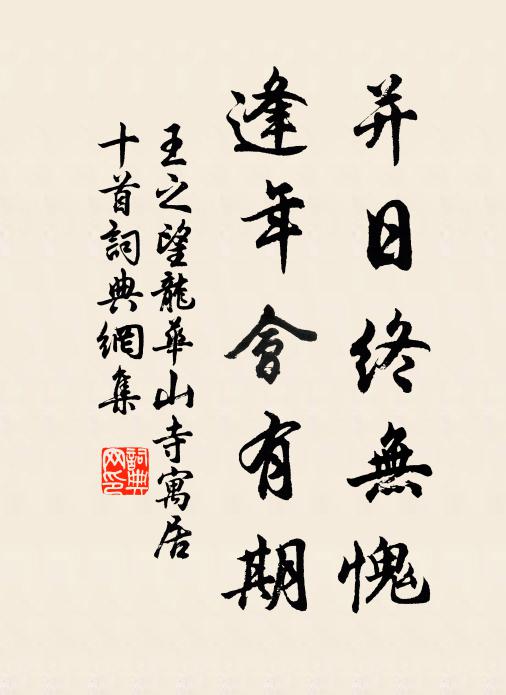 并日終無愧
逢年會有期
王之望龍華山寺寓居
十首詞典網集
詞典網印